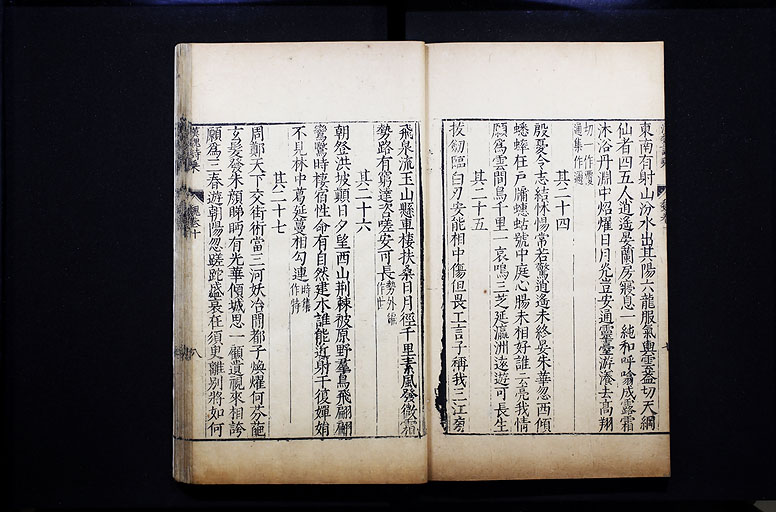 東南有射山汾水出其陽六龍服氣輿雲葢切天綱
仙者四五人逍遙晏蘭房寢息一純和呼噏成露霜
沐浴丹淵中炤燿日月光豈安通靈臺游瀁去高翔
切一作覆
瀁集作瀁
其二十四
殷憂令志結怵惕常若驚逍遙未終晏朱華忽西傾
蟋蟀在戶牖蟪蛄號中庭心腸未相好誰云亮我情
願爲雲間鳥千里一哀鳴三芝延瀛洲遠遊可長生
其二十五
拔劒臨白刃安能相中傷但畏工言子稱我三江旁
飛泉流玉山懸車棲扶桑日月徑千里素風發微霜
勢路有窮達咨嗟安可長
勢外編
作世
其二十六
朝登洪坡顚日夕望西山荆棘被原野羣鳥飛翩翩
鸞鷖時棲宿性命有自然建木誰能近射干復嬋娟
不見林中葛延蔓相勾連
時集
作特
其二十七
周鄭天下交街術當三河妖冶閒都子煥燿何芬葩
玄髮發朱顔睇眄有光華傾城思一顧遺視來相誇
願爲三春遊朝陽忽蹉跎盛衰在須臾離别將如何
漢魏詩集
魏卷十
八